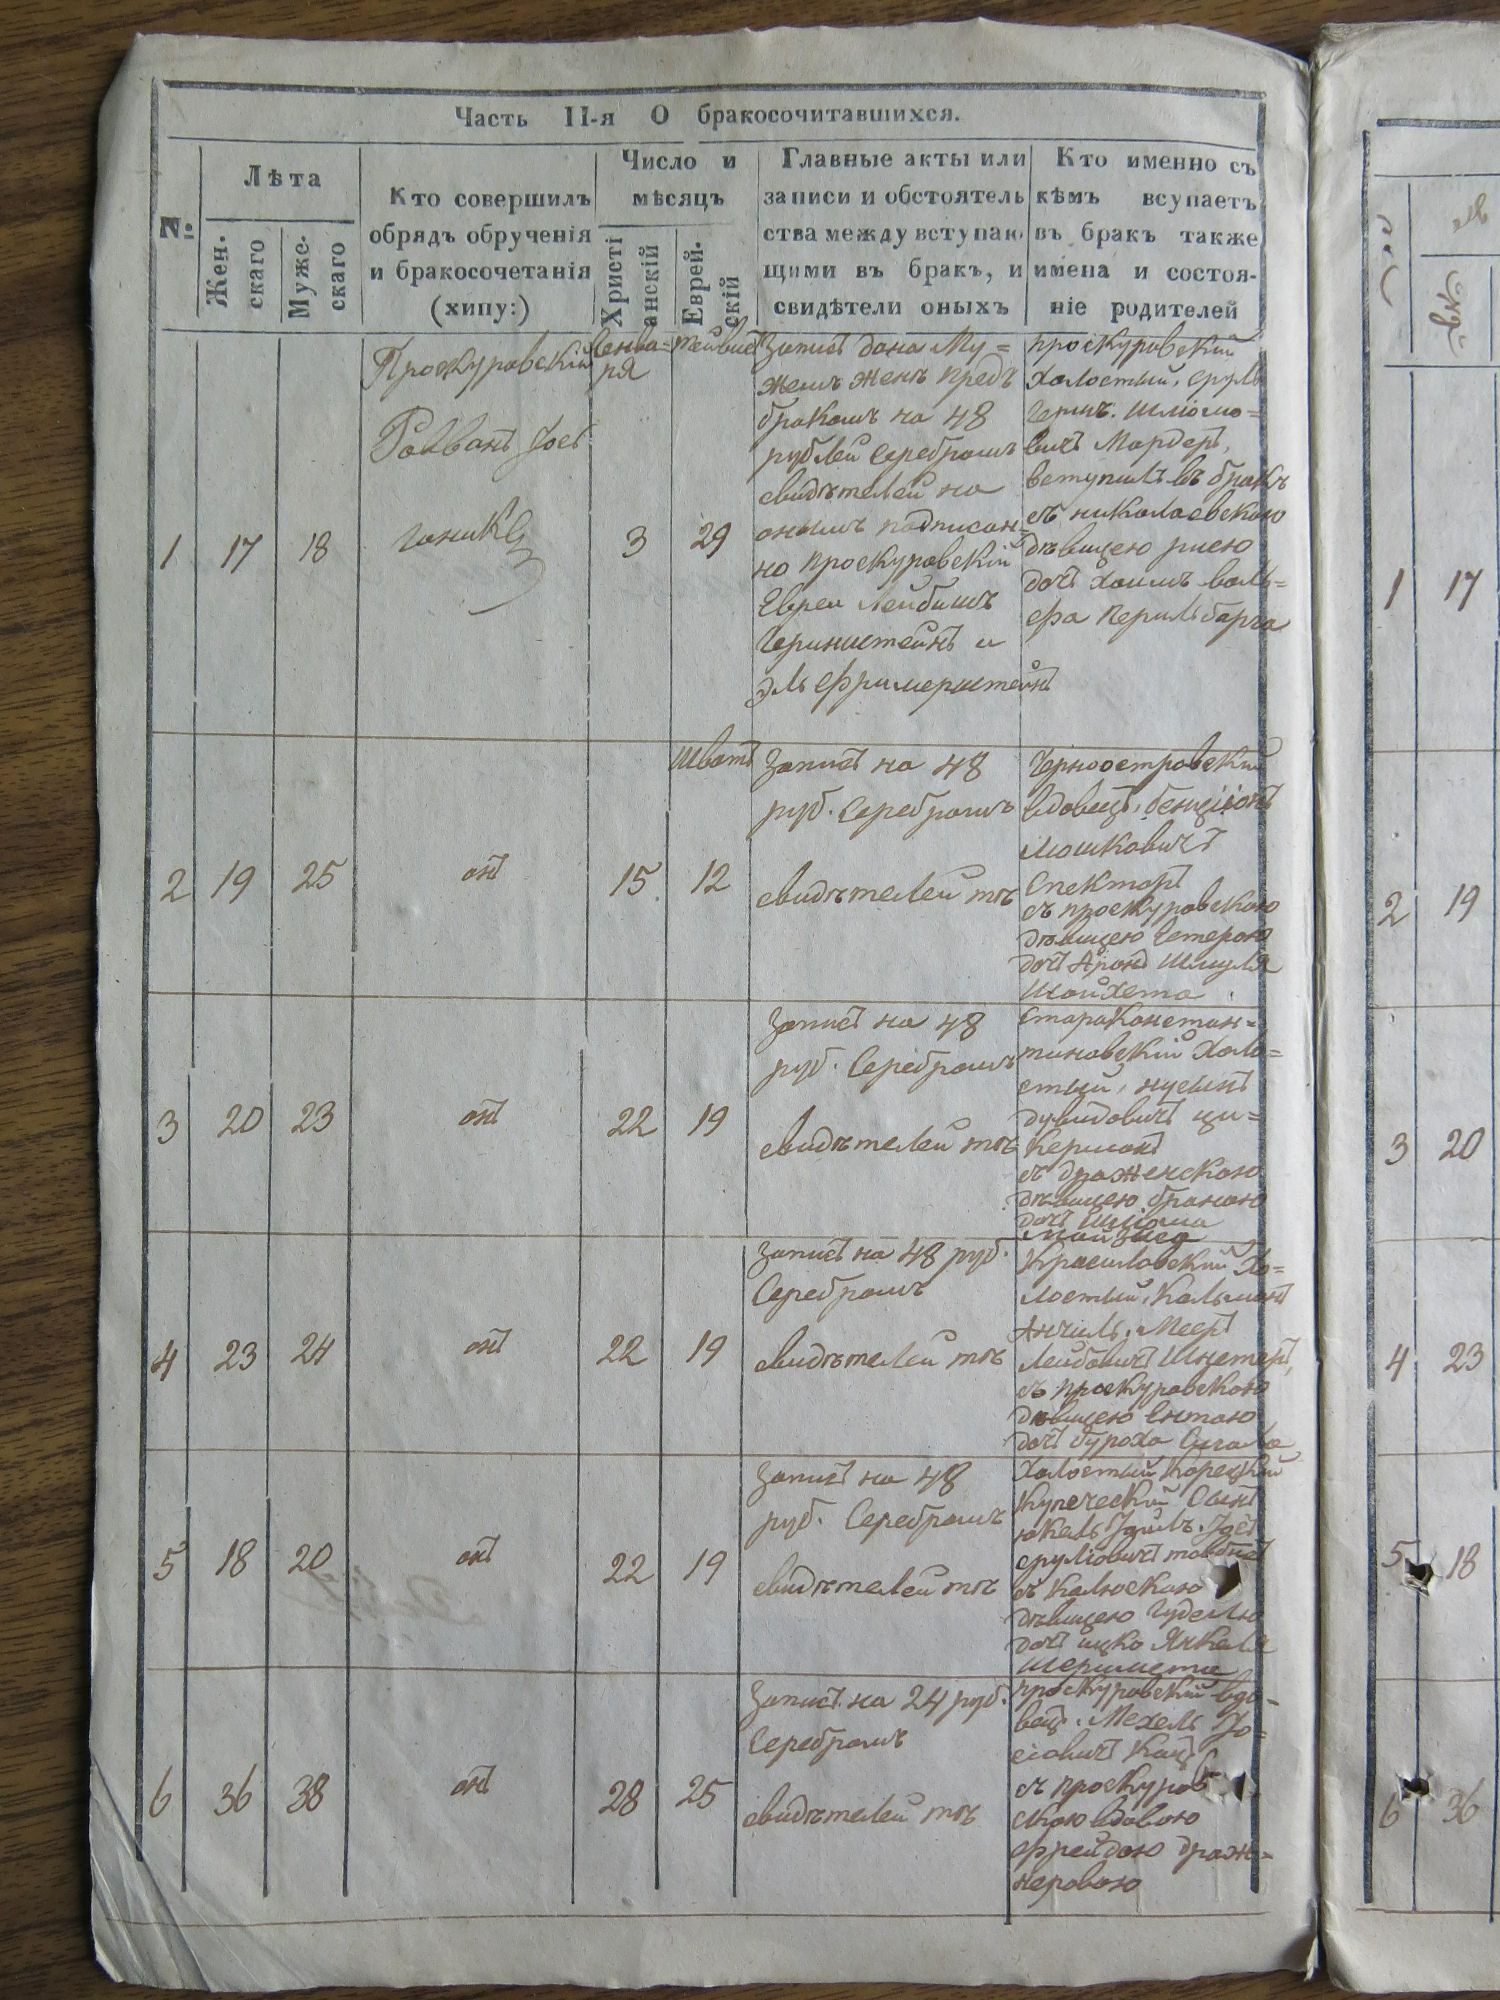 Часть II-я О бракосочитавшихся.
№
Лѣта
Жен-
скаго
Муже-
скаго
Кто совершилъ
обрядъ обрученія
и бракосочетанія
(хипу:)
Число и
мѣсяцъ
Христі
анскій
Еврей-
скій
Главные акты или
записи и обстоятель
ства между вступаю
щими въ бракъ, и
свидѣтели оныхъ
Кто именно съ
кѣмъ всупаетъ
въ бракъ также
имена и состоя-
ніе родителей
1
17
18
Проскуровскій
Раввинъ
Генва-
ря
3
29
Запись дана Му=
жемъ женѣ предъ
бракомъ на 48
рублей серебромъ
свидѣтелей на
ономъ подписан-
но проскуровскій
Евреи Лейбишъ
и
проскуровский
холостый, сруль
Гершъ. Шліомо=
вичъ Мардеръ,
вступилъ въ бракъ
съ николаевскою
дѣвицею рисею
доч Хаимъ воль=
фа
2
19
25
онъ
Шватъ
15
12
Запись на 48
руб. Серебромъ
свидѣтелей тѣ
Черноостровскій
вдовецъ, бенціонъ
Мошковичъ
Спекторъ
съ проскуровскою
дѣвицею Естерою
доч Аронъ Шмуля
Шойхета
3
20
23
онъ
22
19
Запись на 48
руб. Серебромъ
свидѣтелей тѣ
Староконстан=
тиновскій Холо=
стый, нусинъ
дувидовичъ ци=
керманъ
съ драженскою
дѣвицею браною
доч Шліома
4
23
24
онъ
22
19
Запись на 48 руб.
Серебромъ
свидѣтелей тѣ
Красиловскій Хо=
лостый, Кальманъ
Анчиль. Мееръ
Лейбовичъ
съ проскуровскою
дѣвицею Ентою
доч буроха
5
18
20
онъ
22
19
Запись на 48
руб. Серебромъ
свидѣтелей тѣ
Холостый Корецкій
Купеческій Сынъ
сруліовичъ
съ
дѣвицею
доч ицко Янкеля
6
36
38
онъ
28
25
Запись на 24 руб.
Серебромъ
свидѣтелей тѣ
проскуровскій вдо=
вец. Мехель Іо=
сіовичъ Кацъ
съ проскуров
скою вдовою
фрейдою драж=
неровою
1
17
2
19
3
20
4
23
5
18
6
36